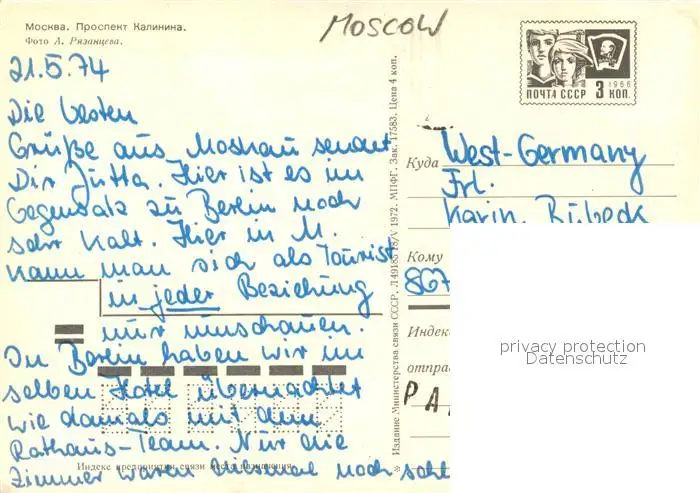 Москва. Проспект Калинина.
Фото А. Рязанцева.
MOSCOW
21.5.74
Die besten
Grüße aus Moskau sendet
Dir Jutta. Hier ist es im
Gegensatz zu Berlin noch
sehr kalt. Hier in M.
kann man sich als Tourist
in jeder Beziehung
nur umschauen.
In Berlin haben wir im
selben Hotel übernachtet
wie damals mit dem
Rathaus-Team. Nur die
Zimmer waren diesmal noch
Индекс предприятия связи места назначения
Издание Министерства связи СССР. 1972. МПФГ. Зак. 17583. Цена 4 коп.
1966
ПОЧТА СССР 3 КОП.
Куда West-Germany
Frl.
Karin Rübeck
Кому
867
Индек
отправ
PA
privacy protection
Datenschutz